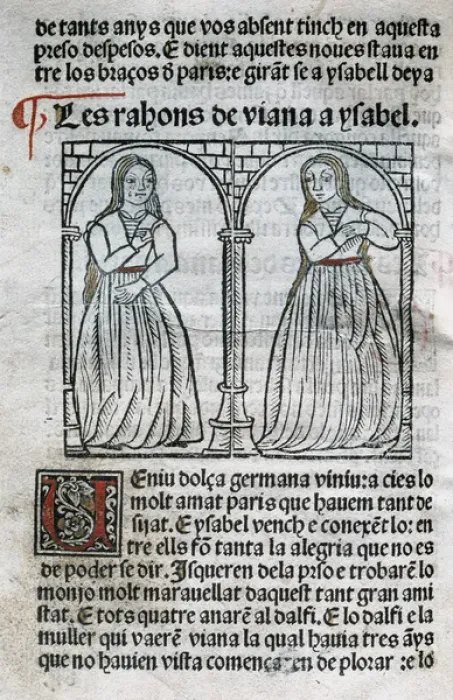 de tants anys que vos absent tinch en aquesta
preso despesos. E dient aquestes noues staua en
tre los braços đ paris: e girāt se a ysabell deya
¶ Les rahons de viana a ysabel.
UEniu dolça germana viniu: a cies lo
molt amat paris que hauem tant de
sijat. E ysabel vench e conexēt lo: en
tre ells fō tanta la alegria que no es
de poder se dir. Isqueren dela prso e trobarē lo
monjo molt marauellat daquest tant gran ami
stat. E tots quatre anarē al dalfi. E lo dalfi e la
muller qui vaerē viana la qual hauia tres āys
que no hauien vista començaren de plorar: e lo